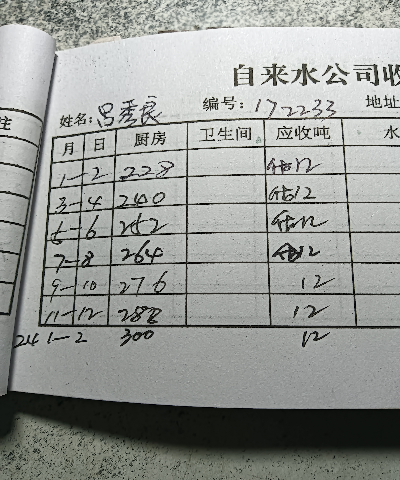 注
自来水公司收
姓名:吕秀良 编号:172233 地址
月 日 厨房 卫生间 应收吨 水
1-2 228 估12
3-4 240 估12
5-6 252 估12
7-8 264 估12
9-10 276 12
11-12 288 12
24 1-2 300 12